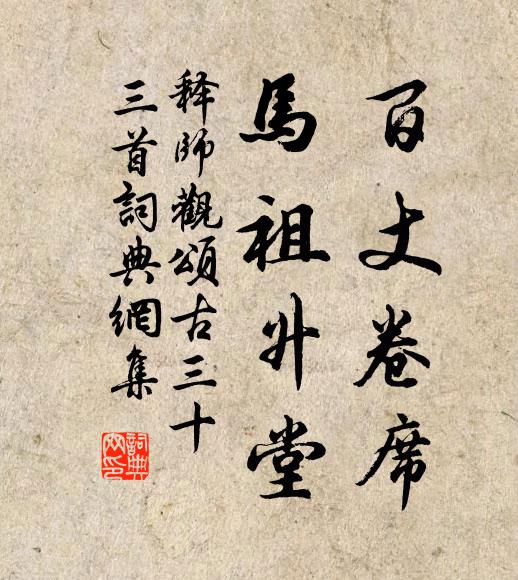 百丈卷席
馬祖升堂
释師觀頌古三十
三首詞典網集
詞典
网印